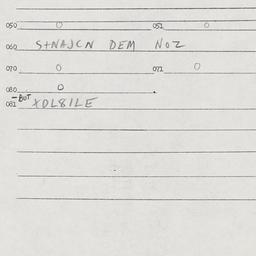 050 0 052 0
060 StNAJCN DEM NOZ
070 0 071 0
080 0
-BUT
081 XDL81LE